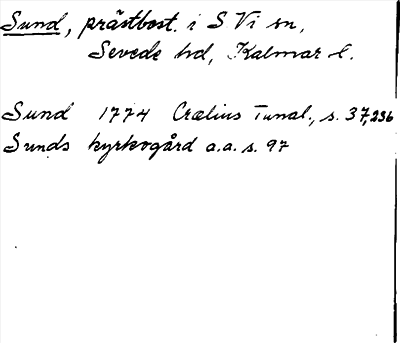 Sund, prästbost. i S Vi sn,
Sevede hd, Kalmar l.
Sund 1774 Crælius Tunal., s. 37,236
Sunds kyrkogård a.a. s. 97